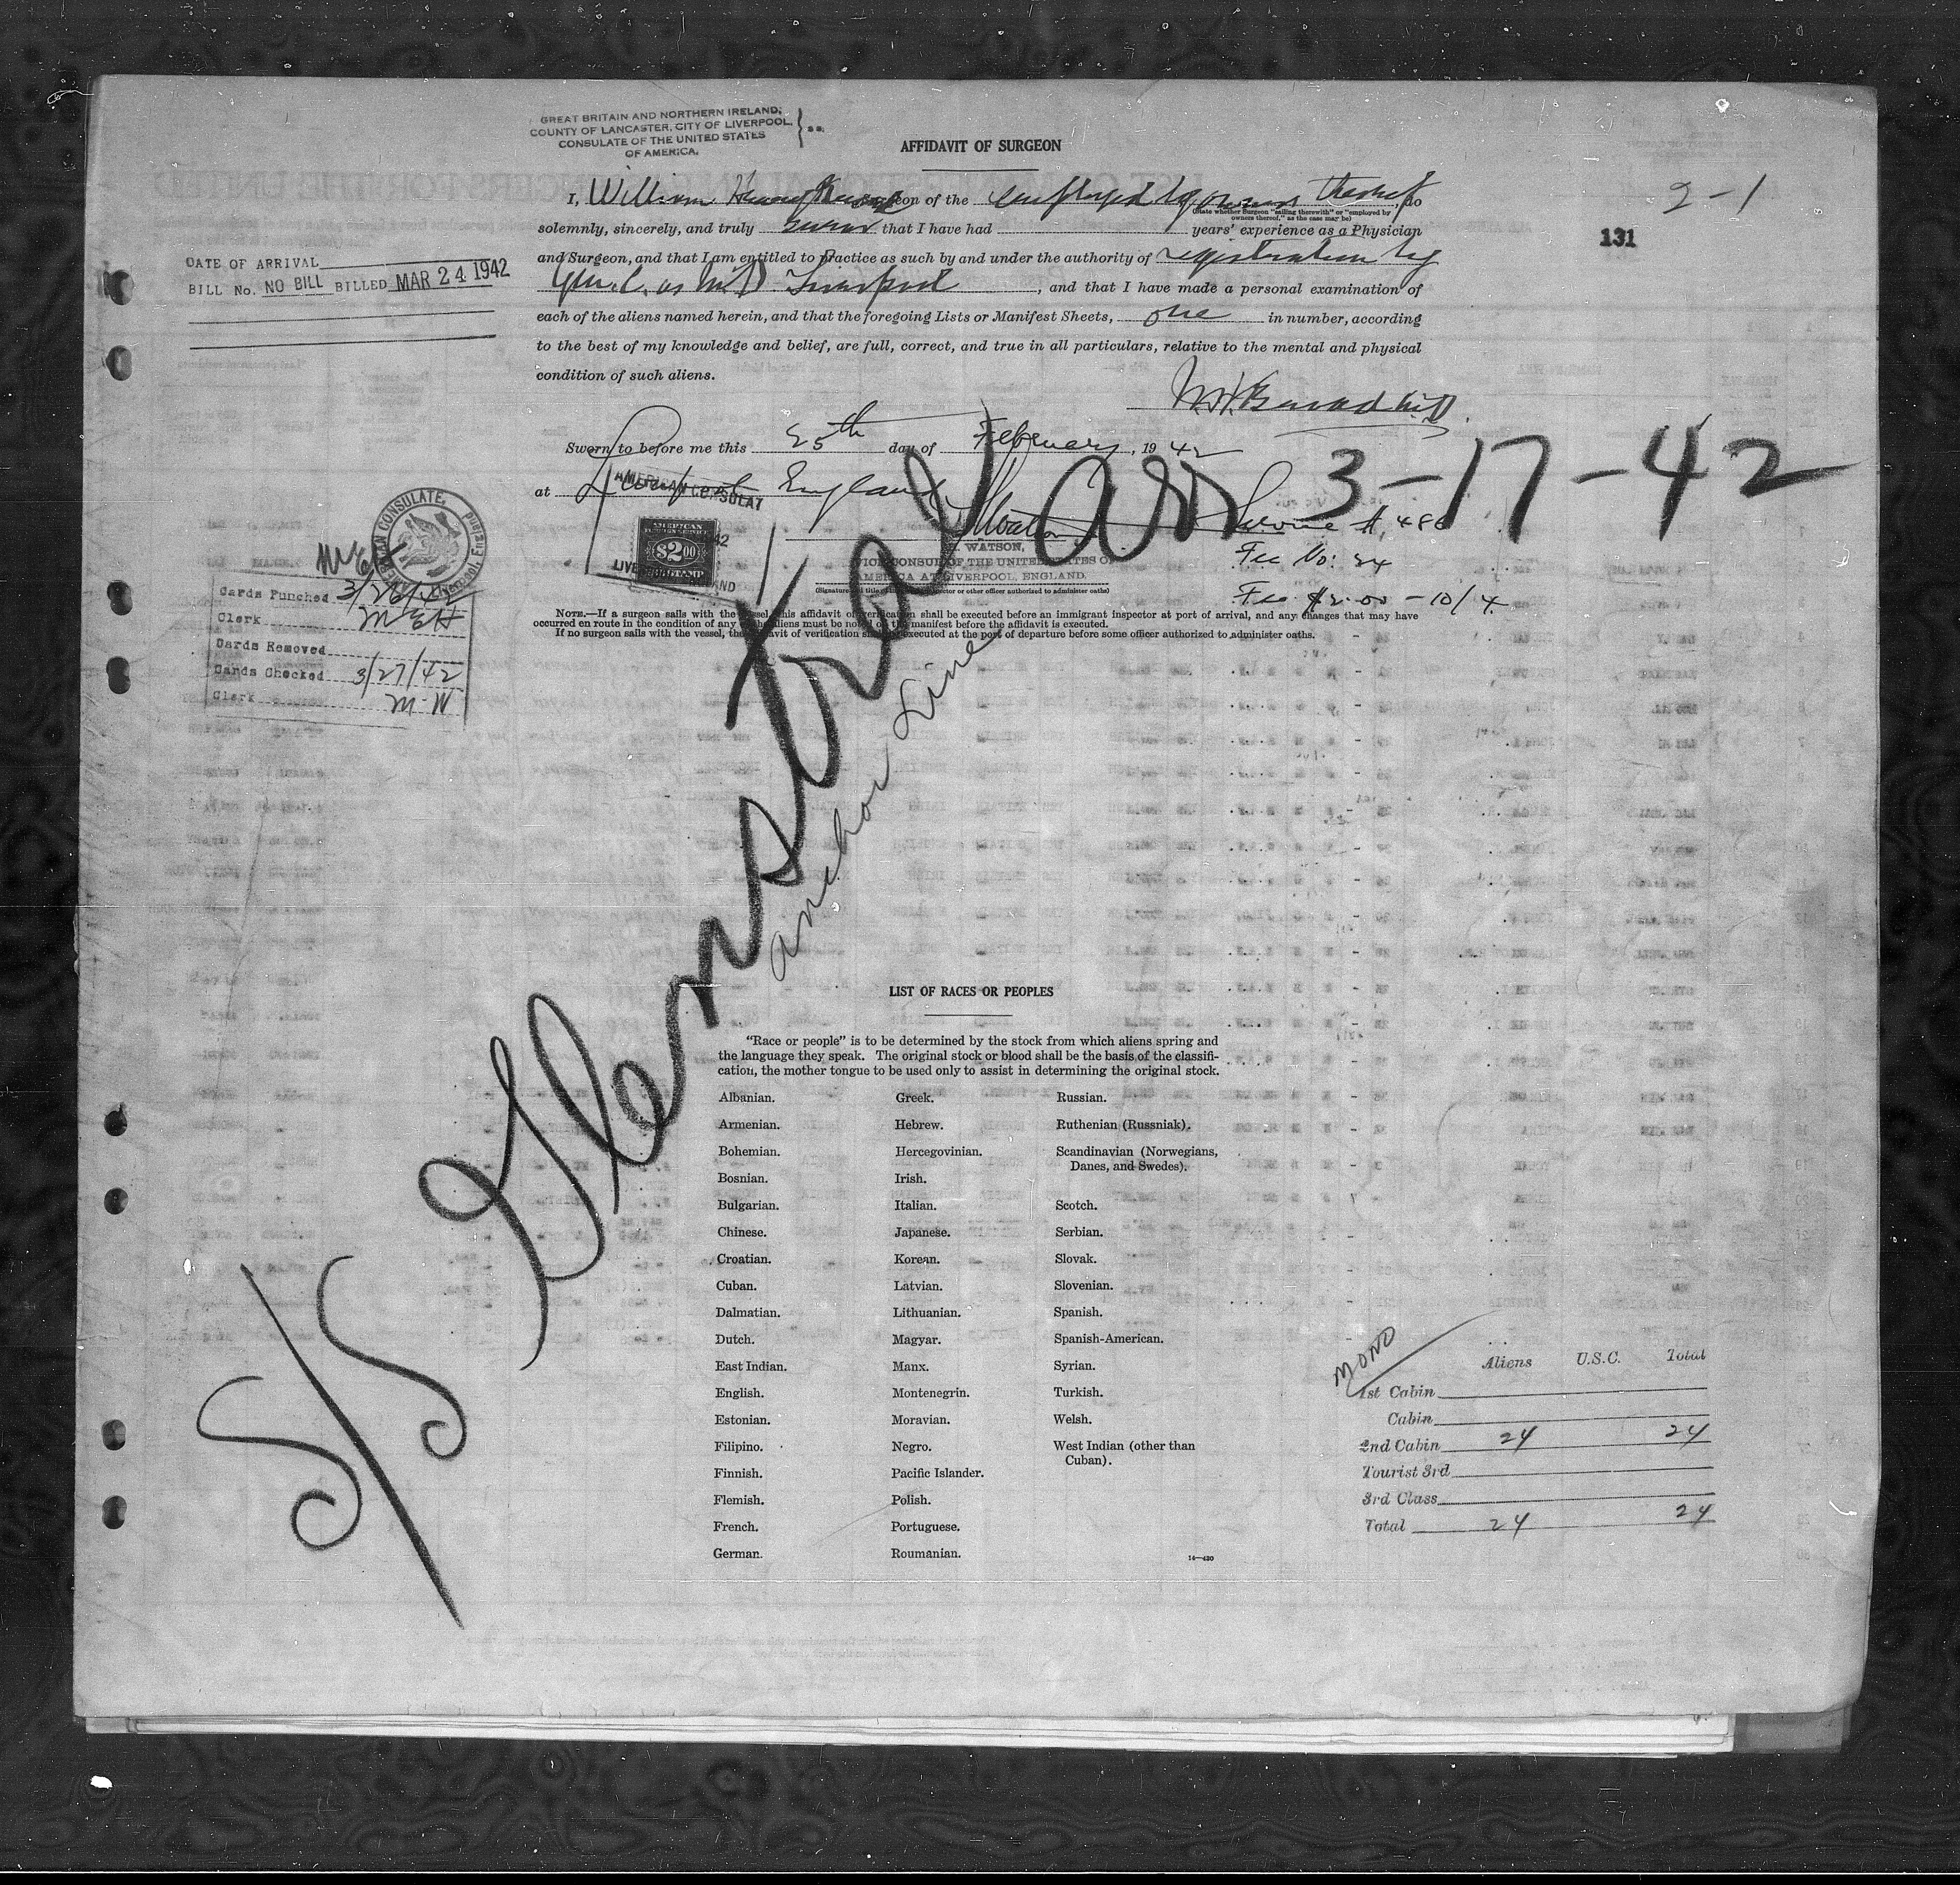 GREAT BRITAIN AND NORTHERN IRELAND,
COUNTY OF LANCASTER, CITY OF LIVERPOOL,
CONSULATE OF THE UNITED STATES
OF AMERICA.
} ss.
AFFIDAVIT OF SURGEON
2-1
131
I, William Henry surgeon of the employed by owners thereof, do
(State whether Surgeon "sailing therewith" or "employed by
owners thereof," as the case may be)
solemnly, sincerely, and truly swear that I have had years' experience as a Physician
and Surgeon, and that I am entitled to practice as such by and under the authority of registration by
as M.D. Liverpool, and that I have made a personal examination of
each of the aliens named herein, and that the foregoing Lists or Manifest Sheets, one in number, according
to the best of my knowledge and belief, are full, correct, and true in all particulars, relative to the mental and physical
condition of such aliens.
DATE OF ARRIVAL
BILL No. NO BILL BILLED MAR 24 1942
Sworn to before me this 25th day of February, 1942
at Liverpool England
arr 3-17-42
AMERICAN CONSULATE
AMERICAN
FOREIGN SERVICE
$2.00
FEE STAMP
WATSON,
VICE CONSUL OF THE UNITED STATES OF
AMERICA AT LIVERPOOL, ENGLAND.
(Signature and title of immigrant inspector or other officer authorized to administer oaths)
Service #. 486
Fee No: 24
Fee $2.00 - 10/4
NOTE.—If a surgeon sails with the vessel, this affidavit of verification shall be executed before an immigrant inspector at port of arrival, and any changes that may have
occurred en route in the condition of any of the aliens must be noted on the manifest before the affidavit is executed.
If no surgeon sails with the vessel, the affidavit of verification shall be executed at the port of departure before some officer authorized to administer oaths.
AMERICAN CONSULATE, Liverpool, England
MEH
Cards Punched 3/26/42
Clerk MEH
Cards Removed
Cards Checked 3/27/42
Clerk M-W
S/S Glenstrae
Anchor Line
LIST OF RACES OR PEOPLES
"Race or people" is to be determined by the stock from which aliens spring and
the language they speak. The original stock or blood shall be the basis of the classifi-
cation, the mother tongue to be used only to assist in determining the original stock.
Albanian. Greek. Russian.
Armenian. Hebrew. Ruthenian (Russniak).
Bohemian. Hercegovinian. Scandinavian (Norwegians,
Danes, and Swedes).
Bosnian. Irish.
Bulgarian. Italian. Scotch.
Chinese. Japanese. Serbian.
Croatian. Korean. Slovak.
Cuban. Latvian. Slovenian.
Dalmatian. Lithuanian. Spanish.
Dutch. Magyar. Spanish-American.
East Indian. Manx. Syrian.
English. Montenegrin. Turkish.
Estonian. Moravian. Welsh.
Filipino. Negro. West Indian (other than
Cuban).
Finnish. Pacific Islander.
Flemish. Polish.
French. Portuguese.
German. Roumanian.
14—430
MONO
Aliens U.S.C. Total
1st Cabin
Cabin
2nd Cabin 24 24
Tourist 3rd
3rd Class
Total 24 24